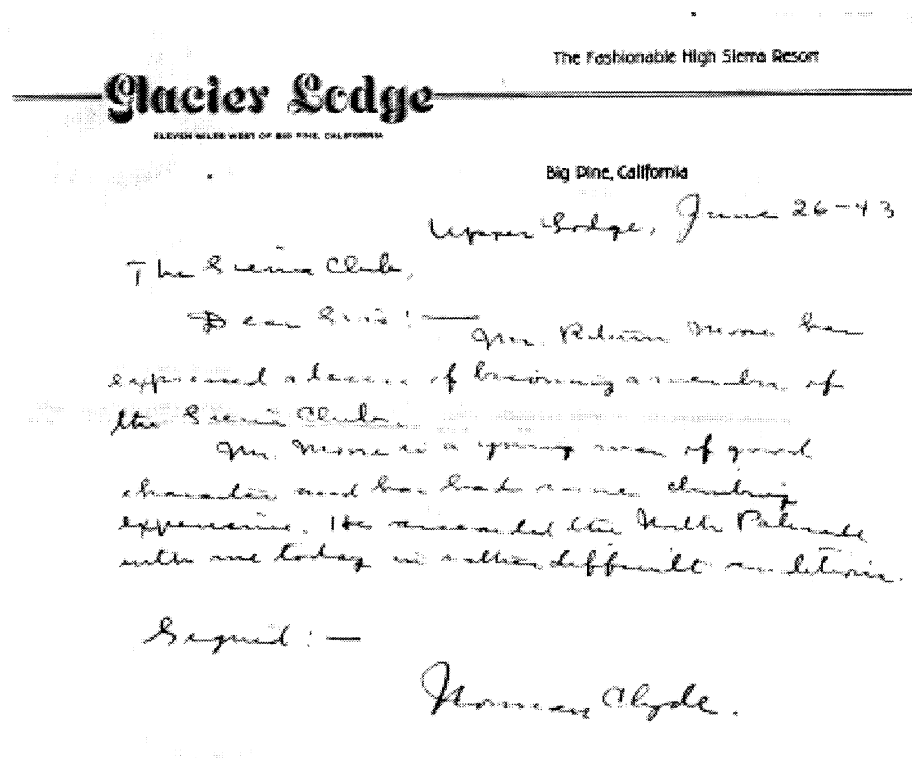 The Fashionable High Sierra Resort
Glacier Lodge
ELEVEN MILES WEST OF BIG PINE, CALIFORNIA
Big Pine, California
Upper Lodge, June 26-43
The Sierra Club,
Dear Sirs:—
Mr. Moore has
expressed a desire of becoming a member of
the Sierra Club.
Mr. Moore is a young man of good
character and has had some climbing
experience. He ascended the North Palisade
with me today in rather difficult conditions.
Signed:—
Norman Clyde.